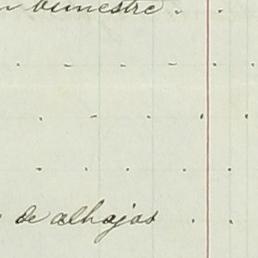 bimestre.
de alhajas